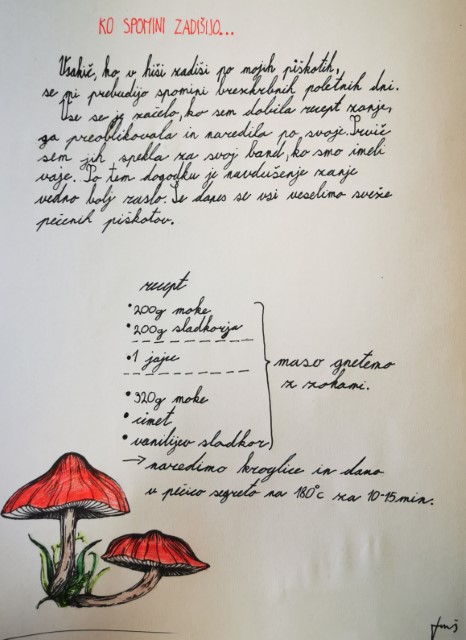 KO SPOMINI ZADIŠIJO...
Vsakič, ko v hiši zadiši po mojih piškotih,
se mi prebudijo spomini brezskrbnih poletnih dni.
Vse se je začelo, ko sem dobila recept zanje,
ga preoblikovala in naredila po svoje. Prvič
sem jih spekla za svoj band, ko smo imeli
vaje. Po tem dogodku je navdušenje zanje
vedno bolj raslo. Še danes se vsi veselimo sveže
pečenih piškotov.
recept
• 200g moke
• 200g sladkorja
• 1 jajce
maso gnetemo
z rokami.
• 320g moke
• cimet
• vanilijev sladkor
→ naredimo kroglice in damo
v pečico segreto na 180°C za 10-15 min.